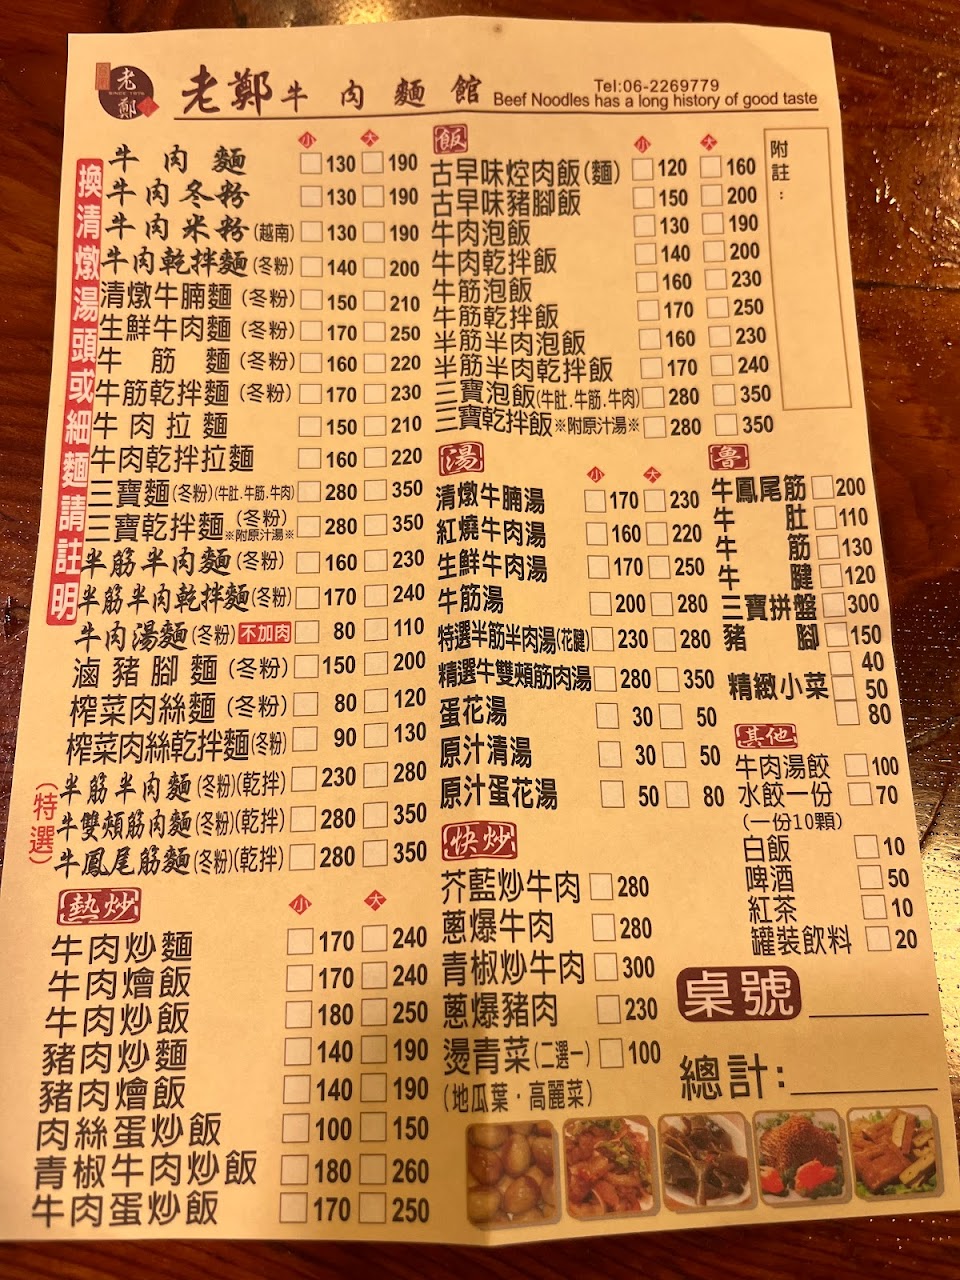 老鄭
SINCE 1975
老鄭牛肉麵館
Tel:06-2269779
Beef Noodles has a long history of good taste
換清燉湯頭或細麵請註明
小 大
牛肉麵 130 190
牛肉冬粉 130 190
牛肉米粉(越南) 130 190
牛肉乾拌麵(冬粉) 140 200
清燉牛腩麵(冬粉) 150 210
生鮮牛肉麵(冬粉) 170 250
牛筋麵(冬粉) 160 220
牛筋乾拌麵(冬粉) 170 230
牛肉拉麵 150 210
牛肉乾拌拉麵 160 220
三寶麵(冬粉)(牛肚.牛筋.牛肉) 280 350
三寶乾拌麵(冬粉)※附原汁湯※ 280 350
半筋半肉麵(冬粉) 160 230
半筋半肉乾拌麵(冬粉) 170 240
牛肉湯麵(冬粉)不加肉 80 110
滷豬腳麵(冬粉) 150 200
榨菜肉絲麵(冬粉) 80 120
榨菜肉絲乾拌麵(冬粉) 90 130
(特選)
半筋半肉麵(冬粉)(乾拌) 230 280
牛雙頰筋肉麵(冬粉)(乾拌) 280 350
牛鳳尾筋麵(冬粉)(乾拌) 280 350
熱炒 小 大
牛肉炒麵 170 240
牛肉燴飯 170 240
牛肉炒飯 180 250
豬肉炒麵 140 190
豬肉燴飯 140 190
肉絲蛋炒飯 100 150
青椒牛肉炒飯 180 260
牛肉蛋炒飯 170 250
飯 小 大
古早味焢肉飯(麵) 120 160
古早味豬腳飯 150 200
牛肉泡飯 130 190
牛肉乾拌飯 140 200
牛筋泡飯 160 230
牛筋乾拌飯 170 250
半筋半肉泡飯 160 230
半筋半肉乾拌飯 170 240
三寶泡飯(牛肚.牛筋.牛肉) 280 350
三寶乾拌飯※附原汁湯※ 280 350
附註:
湯 小 大
清燉牛腩湯 170 230
紅燒牛肉湯 160 220
生鮮牛肉湯 170 250
牛筋湯 200 280
特選半筋半肉湯(花腱) 230 280
精選牛雙頰筋肉湯 280 350
蛋花湯 30 50
原汁清湯 30 50
原汁蛋花湯 50 80
快炒
芥藍炒牛肉 280
蔥爆牛肉 280
青椒炒牛肉 300
蔥爆豬肉 230
燙青菜(二選一) 100
(地瓜葉·高麗菜)
魯
牛鳳尾筋 200
牛肚 110
牛筋 130
牛腱 120
三寶拼盤 300
豬腳 150
精緻小菜 40
50
80
其他
牛肉湯餃 100
水餃一份 70
(一份10顆)
白飯 10
啤酒 50
紅茶 10
罐裝飲料 20
桌號
總計: